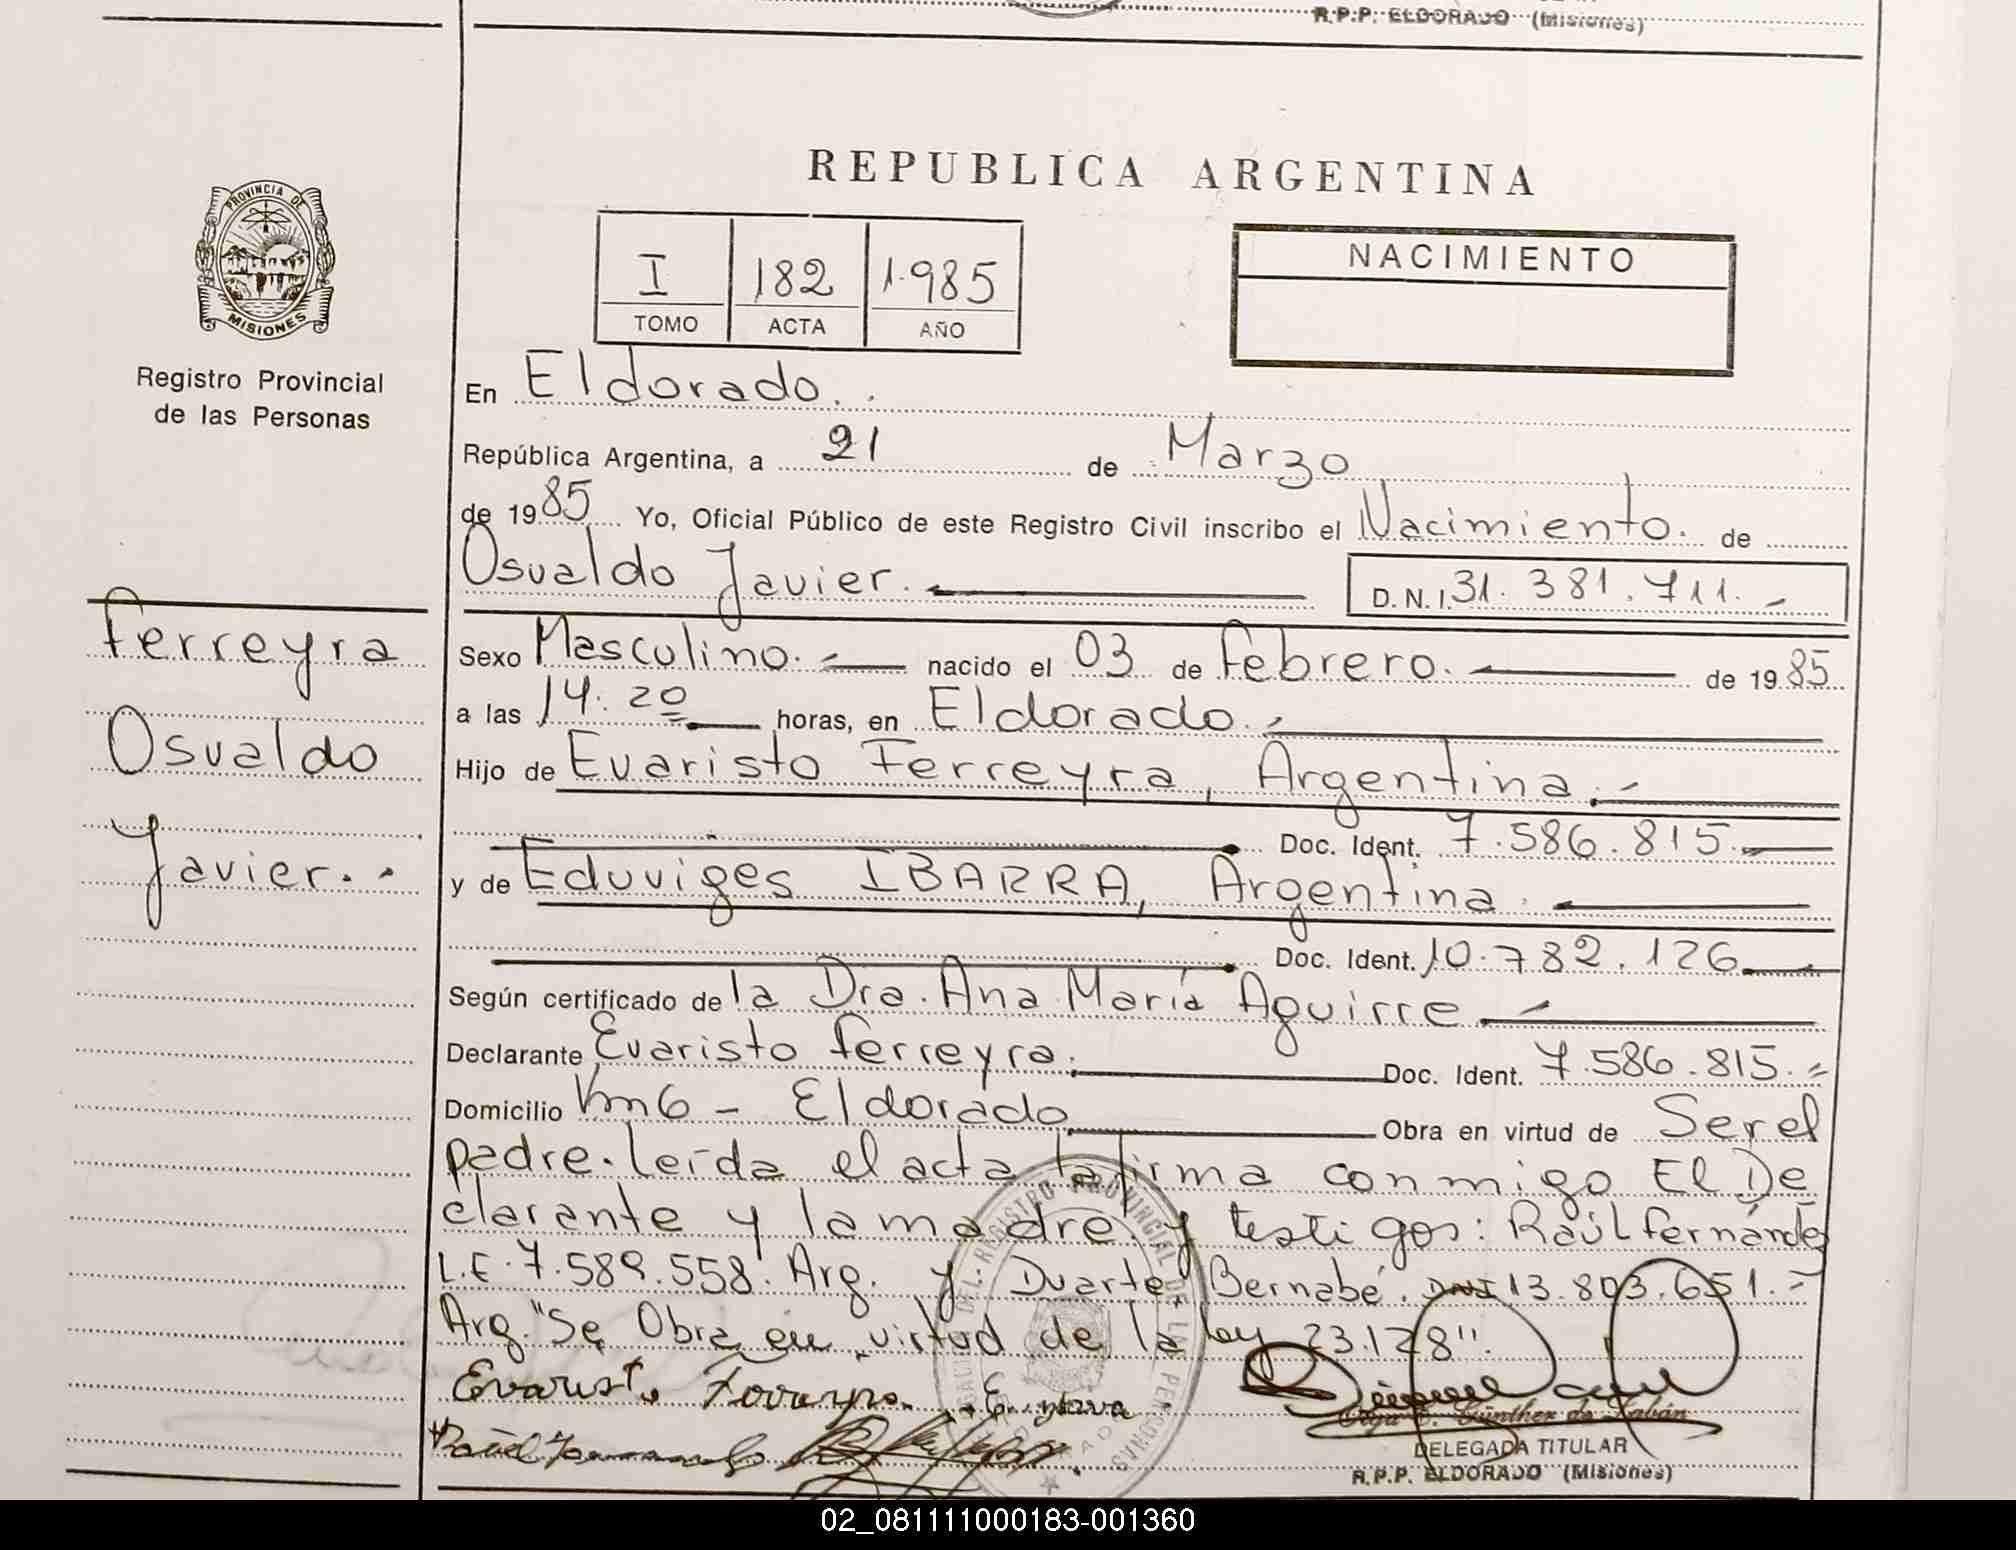 R.P.P. ELDORADO (Misiones)
REPUBLICA ARGENTINA
PROVINCIA DE
MISIONES
Registro Provincial
de las Personas
I 182 1.985
TOMO ACTA AÑO
NACIMIENTO
En Eldorado.
República Argentina, a 21 de Marzo
de 1985 Yo, Oficial Público de este Registro Civil inscribo el Nacimiento. de
Osvaldo Javier. D.N.I. 31.381.711.-
Ferreyra
Osvaldo
Javier.
Sexo Masculino.- nacido el 03 de Febrero. de 1985
a las 14:20 horas, en Eldorado.-
Hijo de Evaristo Ferreyra, Argentina.-
Doc. Ident. 7.586.815.-
y de Eduviges IBARRA, Argentina.
Doc. Ident. 10.782.126
Según certificado de la Dra. Ana María Aguirre
Declarante Evaristo Ferreyra. Doc. Ident. 7.586.815.=
Domicilio Km6 - Eldorado Obra en virtud de Ser el
padre. Leída el acta la firma conmigo El De
clarante y la madre y testigos: Raúl Fernández
L.E. 7.589.558. Arg. y Duarte, Bernabé. DNI 13.803.651.-
Arg. "Se Obra en virtud de la ley 23.128".
Evaristo Ferreyra
DELEGADA TITULAR
R.P.P. ELDORADO (Misiones)
DEL REGISTRO PROVINCIAL DE LAS PERSONAS
02_081111000183-001360